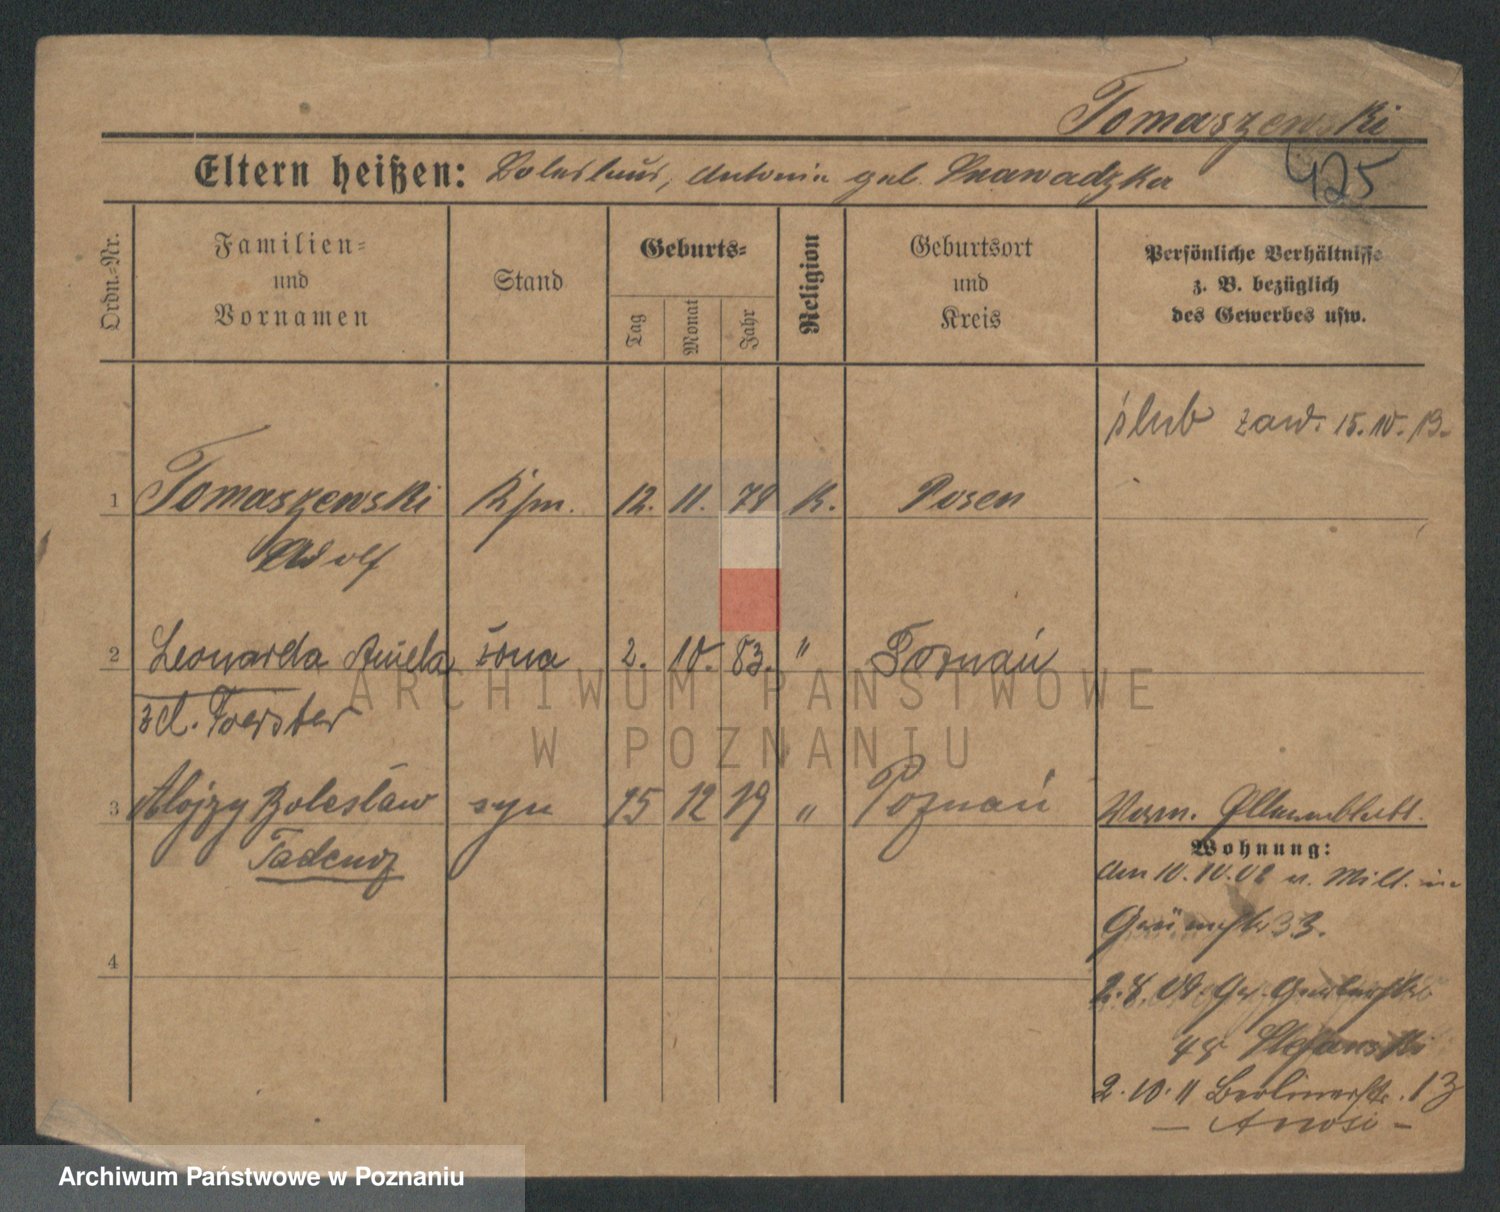 Tomaszewski
425
Eltern heißen: Boleslaus, Antonia geb. Znawadzka
Ordn.-Nr.
Familien-
und
Vornamen
Stand
Geburts-
Tag
Monat
Jahr
Religion
Geburtsort
und
Kreis
Persönliche Verhältnisse
z. B. bezüglich
des Gewerbes usw.
ślub zaw. 15.10.13.
1 Tomaszewski Kfm. 12. 11. 79 K. Posen
Adolf
2 Leonarda Aniela żona 2. 10. 83. " Poznań
zd. Foerster
3 Alojzy Bolesław syn 15 12 19 " Poznań
Tadeusz
Wohnung:
am 10.10.02 v.
33.
4
48 Stefanski
2.10.11 Berlinerstr. 13
ARCHIWUM PAŃSTWOWE
W POZNANIU
Archiwum Państwowe w Poznaniu